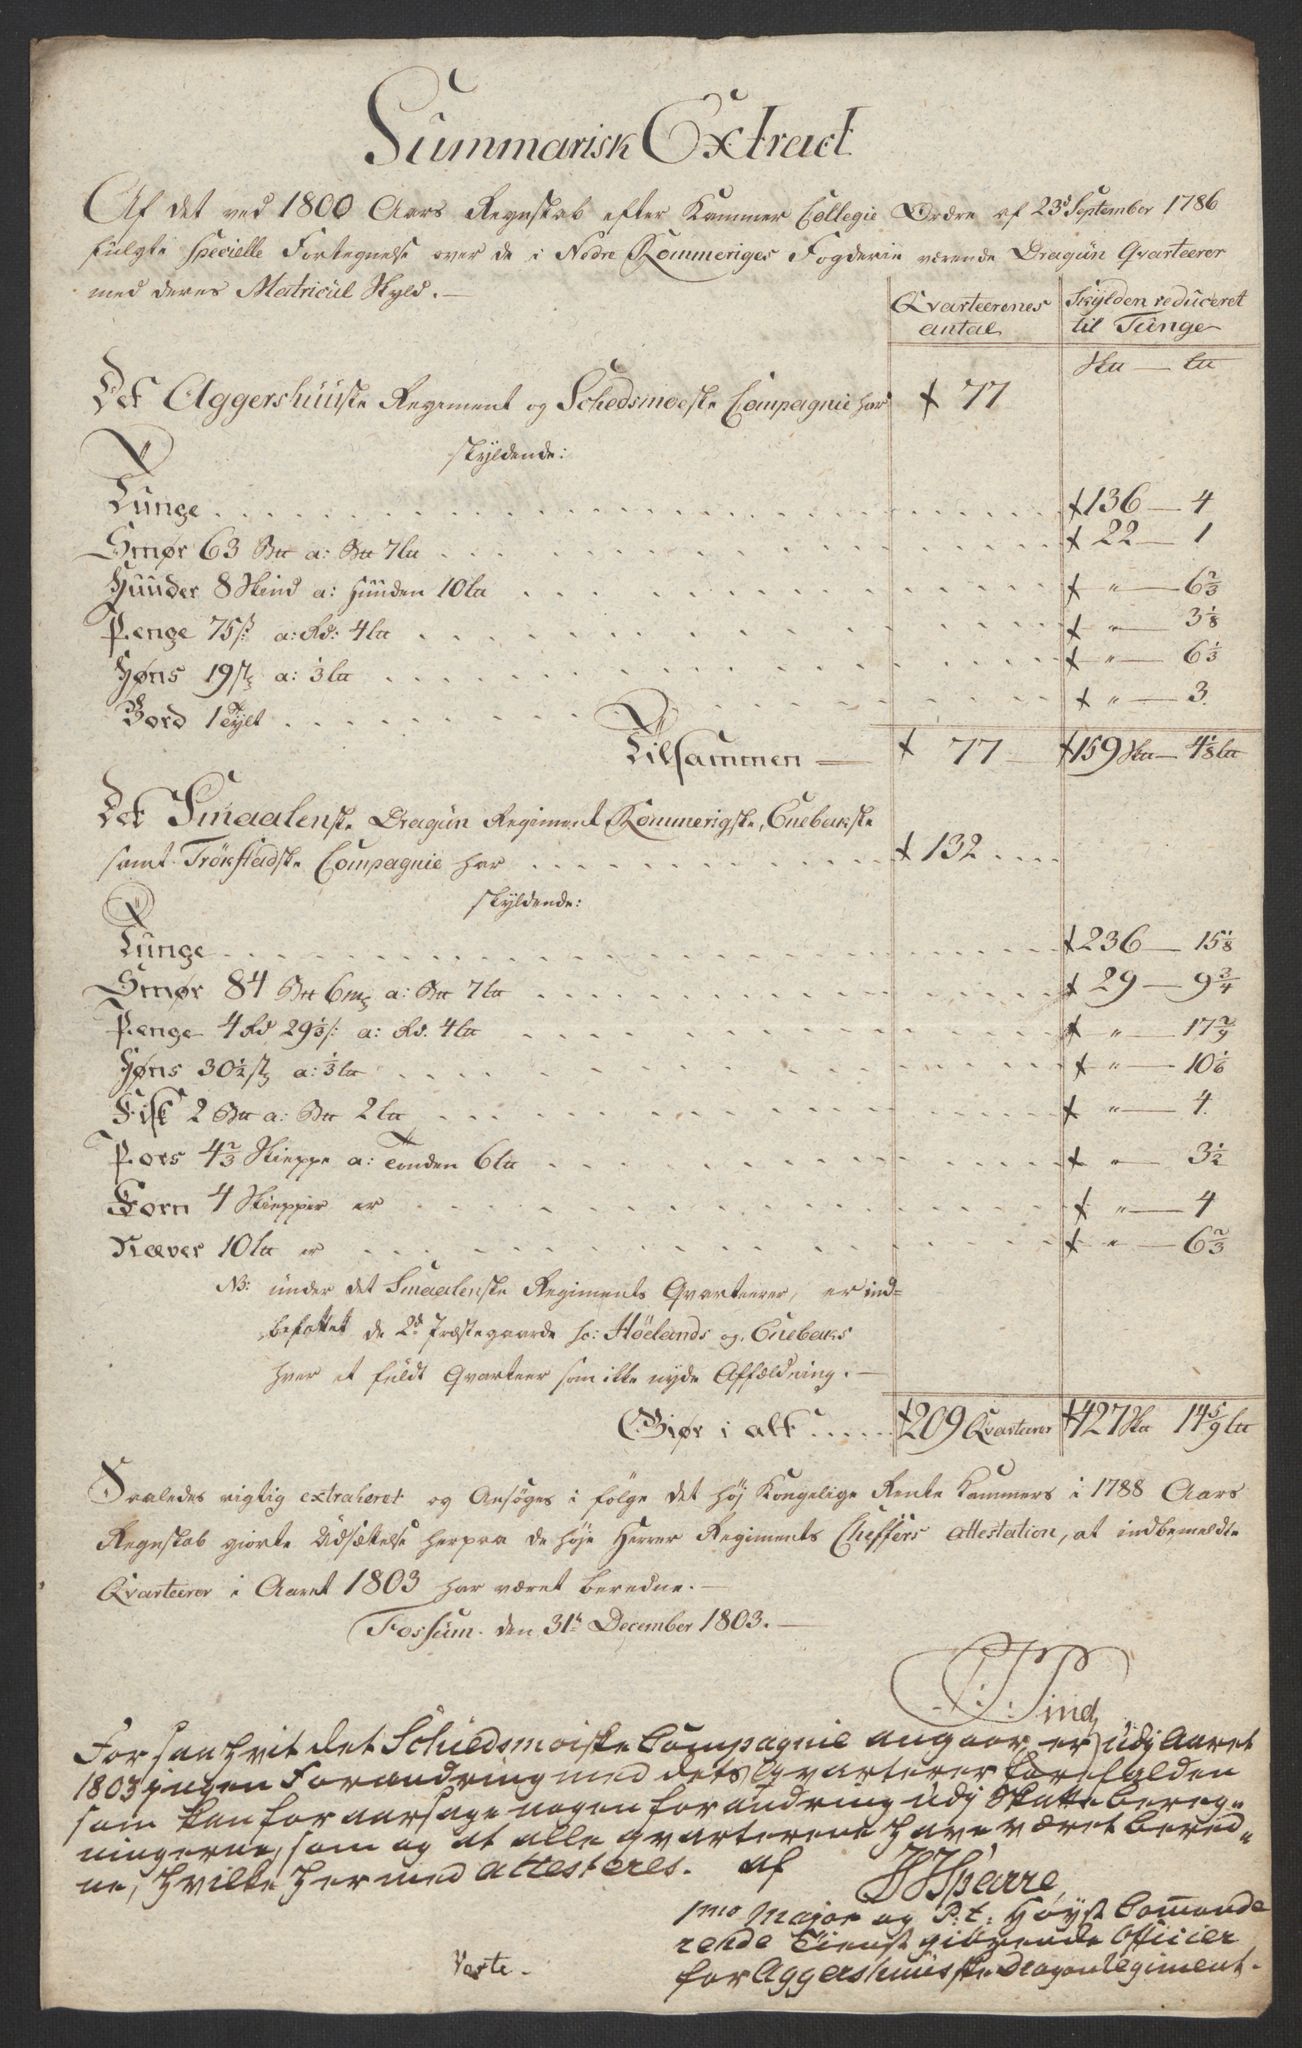 Summarisk Extract
Af det ved 1800 Aars Regnskab efter Kammer Collegie Ordre af 23d September 1786
fulgte specielle Fortegnelse over de i Nedre Rommeriges Fogderie værende Dragun Qvarteerer
med deres Matricul Skyld. —
Qvarteerenes antal
Skylden reduceret til Tunge
Skp — Lp
Det Aggershuuiske Regiment og Schedsmoeske Compagnie har 77
skyldende:
Tunge 136 — 4
Smør 63 Bpd a: Bpd 7 lp 22 — 1
Huuder 8 Skind a: Huuden 10 lp " — 6 2/3
Penge 75 s: a: Rd: 4 lp " — 3 1/8
Høns 19 stk a: 1/3 lp " — 6 1/3
Bord 1 Tylt " — 3.
Tilsammen — 77 — 159 Skp — 4 1/8 lp
Det Smaalenske Dragun Regiment, Rommerigske, Enebakske
samt Trøkstadske Compagnie har 132
skyldende:
Tunge 236 — 15 1/8
Smør 84 Bpd 6 mk a: Bpd 7 lp 29 — 9 3/4
Penge 4 Rd 29 1/3 s: a: Rd. 4 lp " — 17 2/9
Høns 30 1/2 stk a: 1/3 lp " — 10 1/6
Fisk 2 Bpd a: Bpd 2 lp " — 4.
Pors 4 2/3 Skieppe a: Tønden 6 lp " — 3 1/2
Korn 4 Skiepper er " — 4
Næver 10 lp er " — 6 2/3
NB: under det Smaalenske Regiments Qvarteerer, er ind=
befattet de 2de Præstegaarde sc: Høelands og Enebaks
hver et fuldt Qvarteer som ikke nyde Affældning. —
Giør i alt 209 Qvarterer 427 Skp 14 5/9 lp
Saaledes rigtig extraheret og Ansøges i følge det høj Kongelige Rente Kammers i 1788 Aars
Regnskab giorte Udsættelse herpaa de høje Herrer Regiments Cheffers attestation, at indbemeldte
Qvarteerer i Aaret 1803 har været beredne. —
Fossum den 31te December 1803. —
Pind
For saavit det Schiedsmoiske Compagnie angaar, er udj Aaret
1803 jngen Forandring med dets Qvarterer forefalden
som kan foraarsage nogen forandring udj Skattebereg=
ningerne, som og at alle qvarterene have været bered=
ne, hvilke hermed attesteres. af
Sparre
1mo Major og P:t: Høyst Commande
rende Tienstgiørende Officier
for Aggershuusiske Dragon Regiment.
Verte.